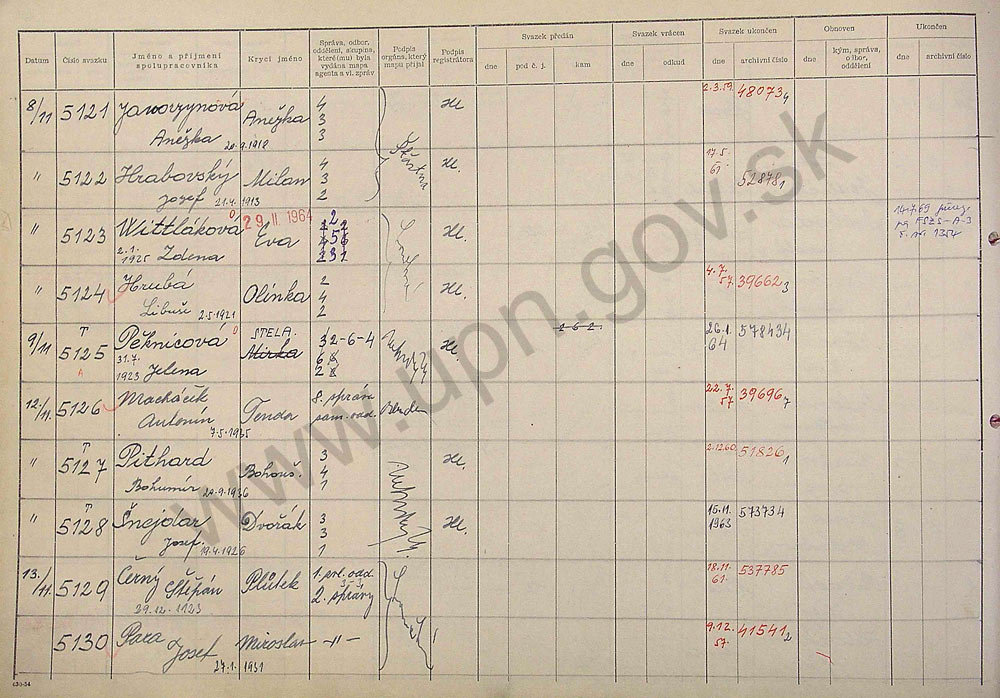 Datum
Číslo svazku
Jméno a příjmení
spolupracovníka
Krycí jméno
Správa, odbor,
oddělení, skupina,
které(mu) byla
vydána mapa
agenta a vl. zpráv
Podpis
orgána, který
mapu přijal
Podpis
registrátora
Svazek předán
dne
pod č. j.
kam
Svazek vrácen
dne
odkud
Svazek ukončen
dne
archivní číslo
Obnoven
kým, správa,
odbor,
oddělení
Ukončen
dne
archivní číslo
8/11 5121 Jaworzynová Anežka 4 Hl. 2.3.59. 48073/4
3
Anežka 20.9.1912 3
" 5122 Hrabovský Milan 4 Hl. 17.5. 52878/1
3 61
Josef 21.4.1913 2
29 II 1964
" 5123 Wittláková Eva 2 Hl. 14.7.69
2.1.
1925 Zdena 231
č. 1354
" 5124 Hrubá Olinka 2 Hl. 4.7. 39662/3
4 57
Libuše 2.5.1921 2
9/11 T STELA.
5125 Pěknicová Mirka 32-6-4 Hl. 262. 26.1. 578434
31.7. 64
1923 Jelena
12./11. 5126 Macháčik Tonda 8. správa 22.7. 39696/7
Antonín sam. odd. 57
7.5.1935
T
" 5127 Pithard Bohouš. 3 Hl. 2.12.60. 51826/1
4
Bohumír 20.9.1936 1
T
" 5128 Šnejdar Dvořák 3 Hl. 15.11. 573734
3 1963
Josef. 19.4.1926 1
13./11. 5129 Černý Štěpán Plůtek 18.11. 537785
61.
29.12.1923 2. správy
5130 Para Miroslav -"- 9.12. 41541/2
Josef 57.
27.1.1931
www.upn.gov.sk